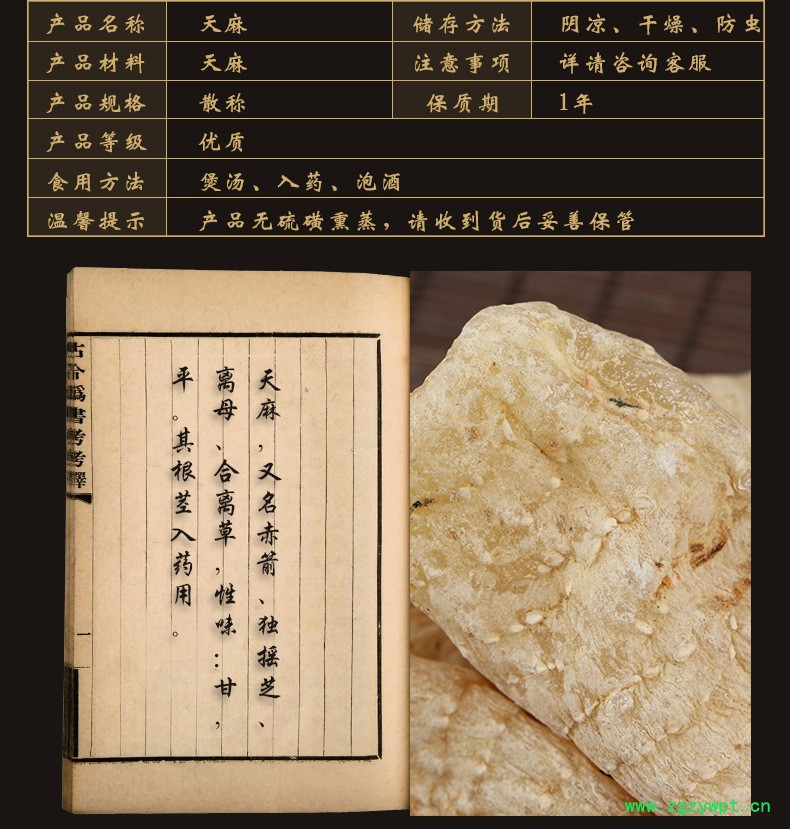 产品名称 天麻 储存方法 阴凉、干燥、防虫
产品材料 天麻 注意事项 详请咨询客服
产品规格 散称 保质期 1年
产品等级 优质
食用方法 煲汤、入药、泡酒
温馨提示 产品无硫磺熏蒸，请收到货后妥善保管
天麻，又名赤箭、独摇芝、
离母、合离草，性味：甘，
平。其根茎入药用。
古今爲書考考釋
一
www.zgzywpt.cn